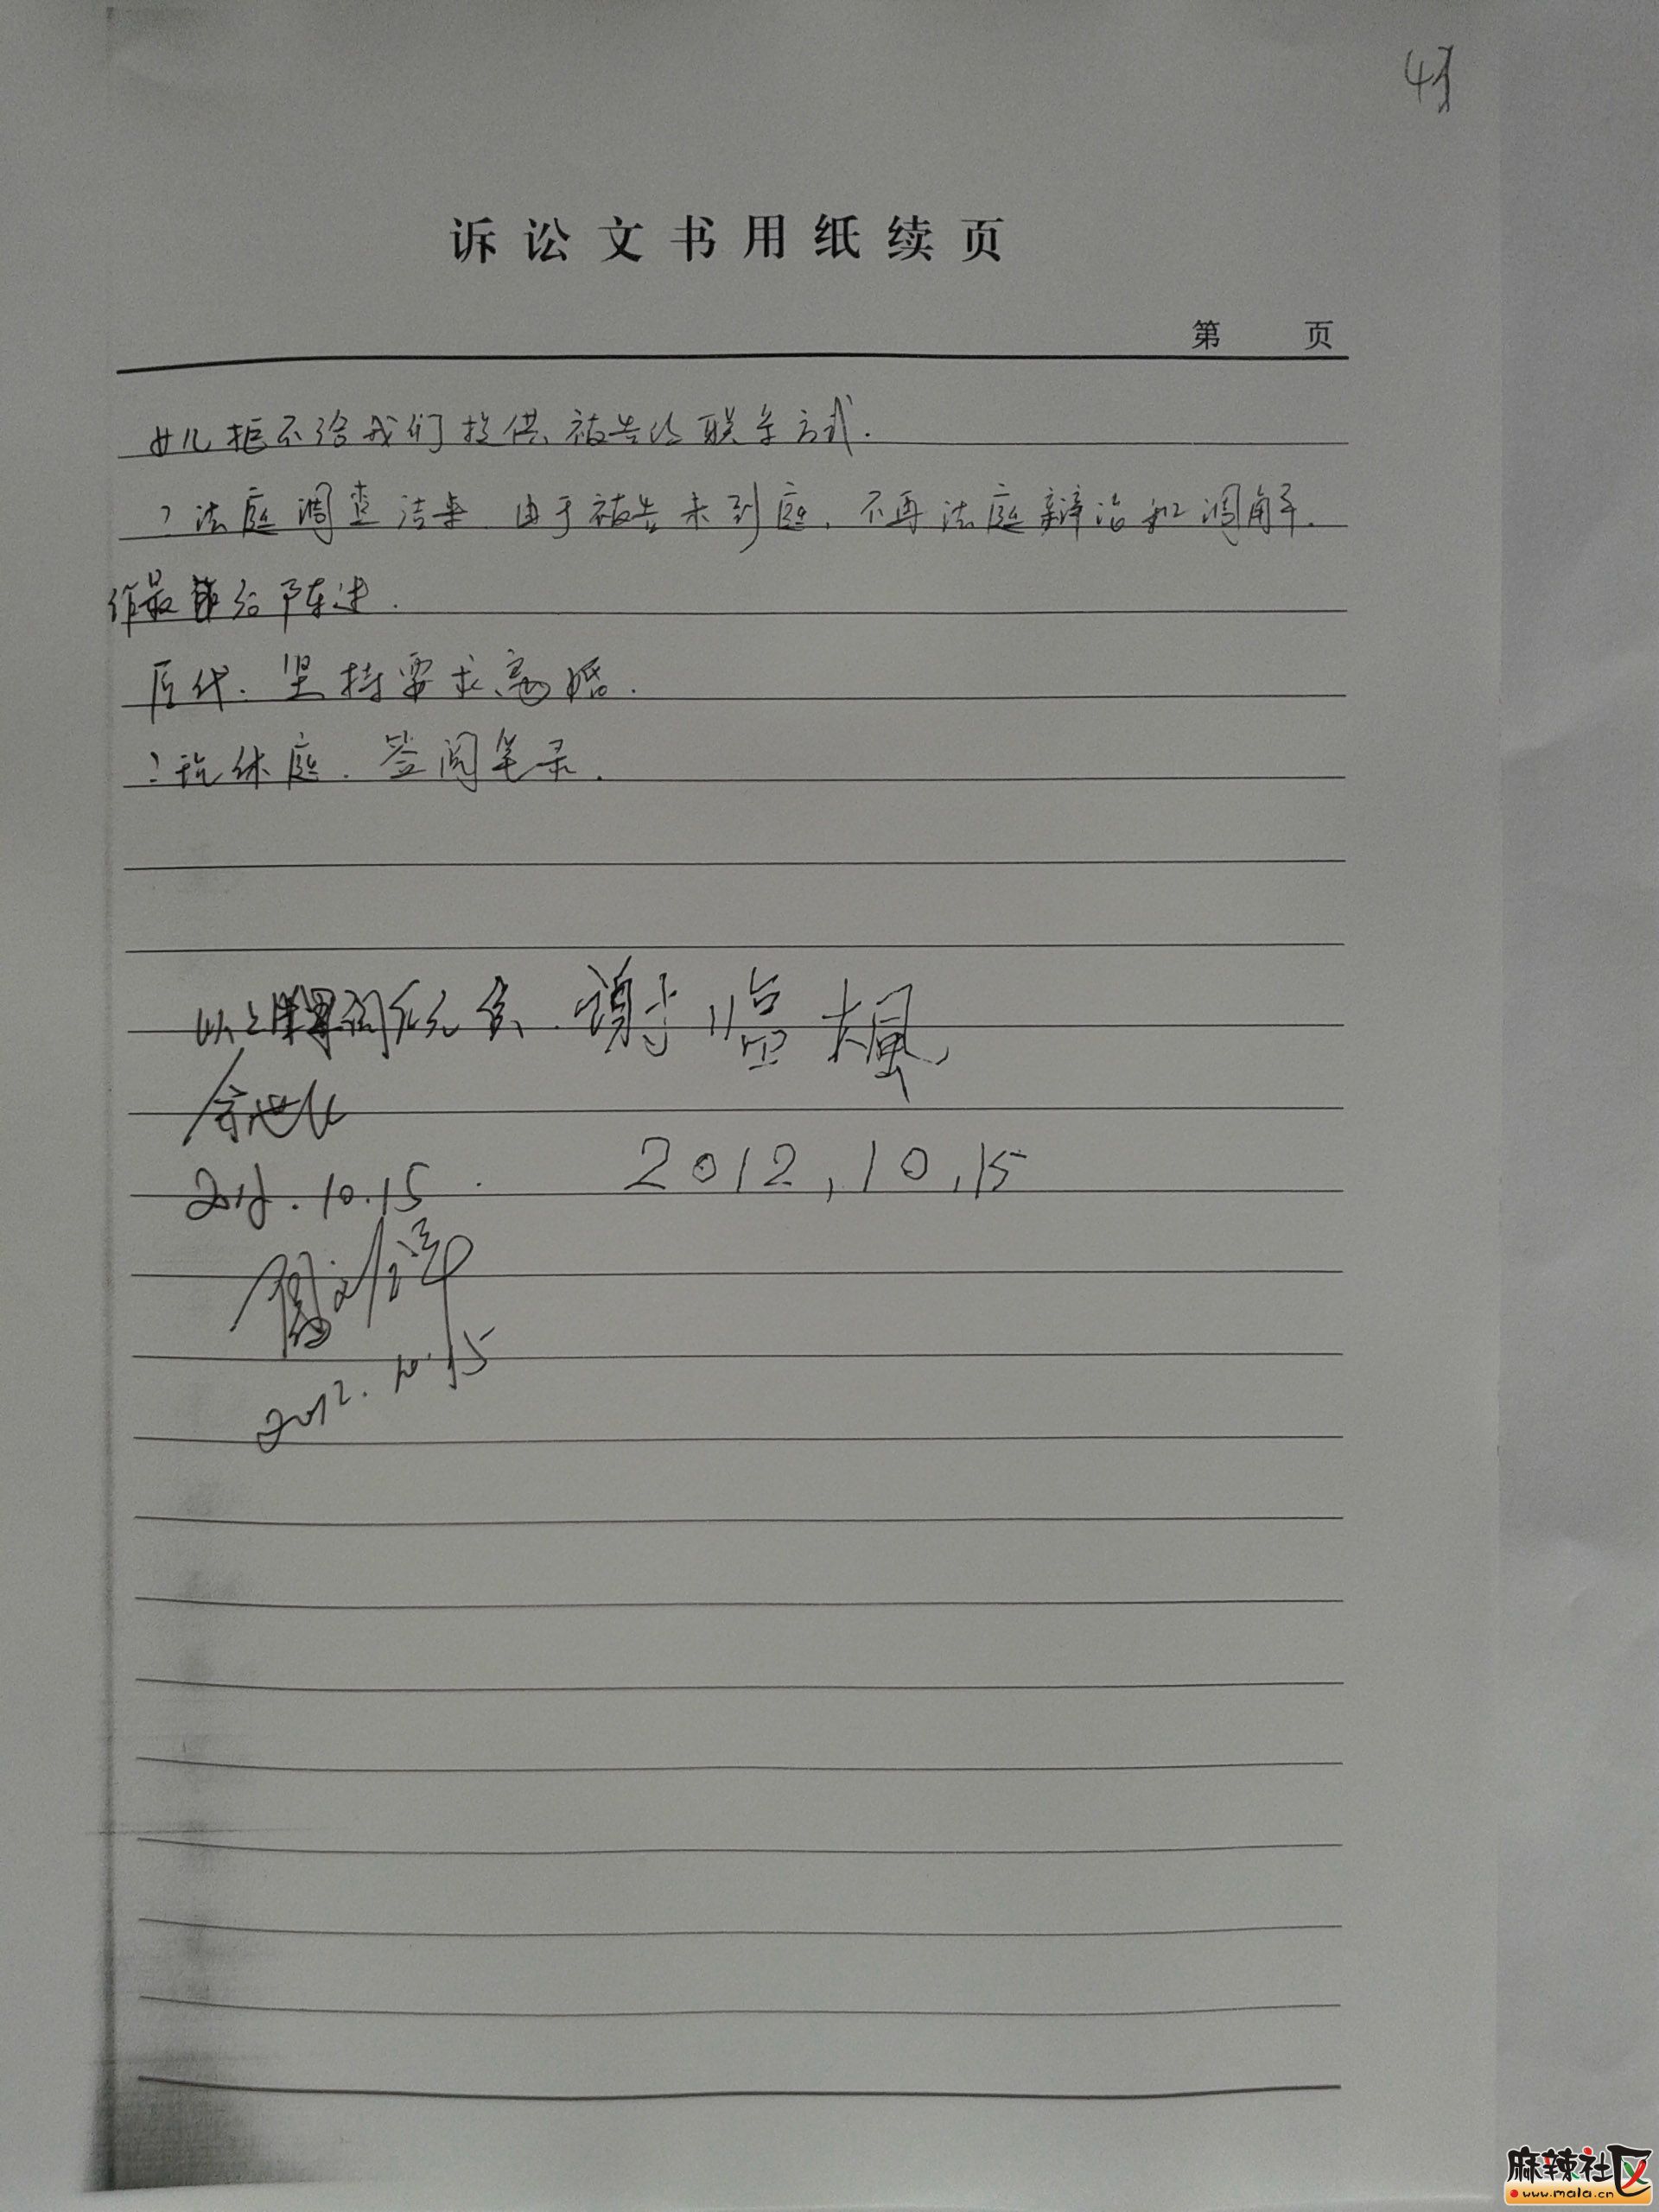 诉讼文书用纸续页
第 页
女儿拒不给我们提供被告的联系方式.
?法庭调查结束.由于被告未到庭,不再法庭辩论和调解.
作最后陈述.
原代:坚持要求离婚.
?现休庭.签阅笔录.
以上
2012.10.15
2012.10.15
2012.10.15
麻辣社区
www.mala.cn